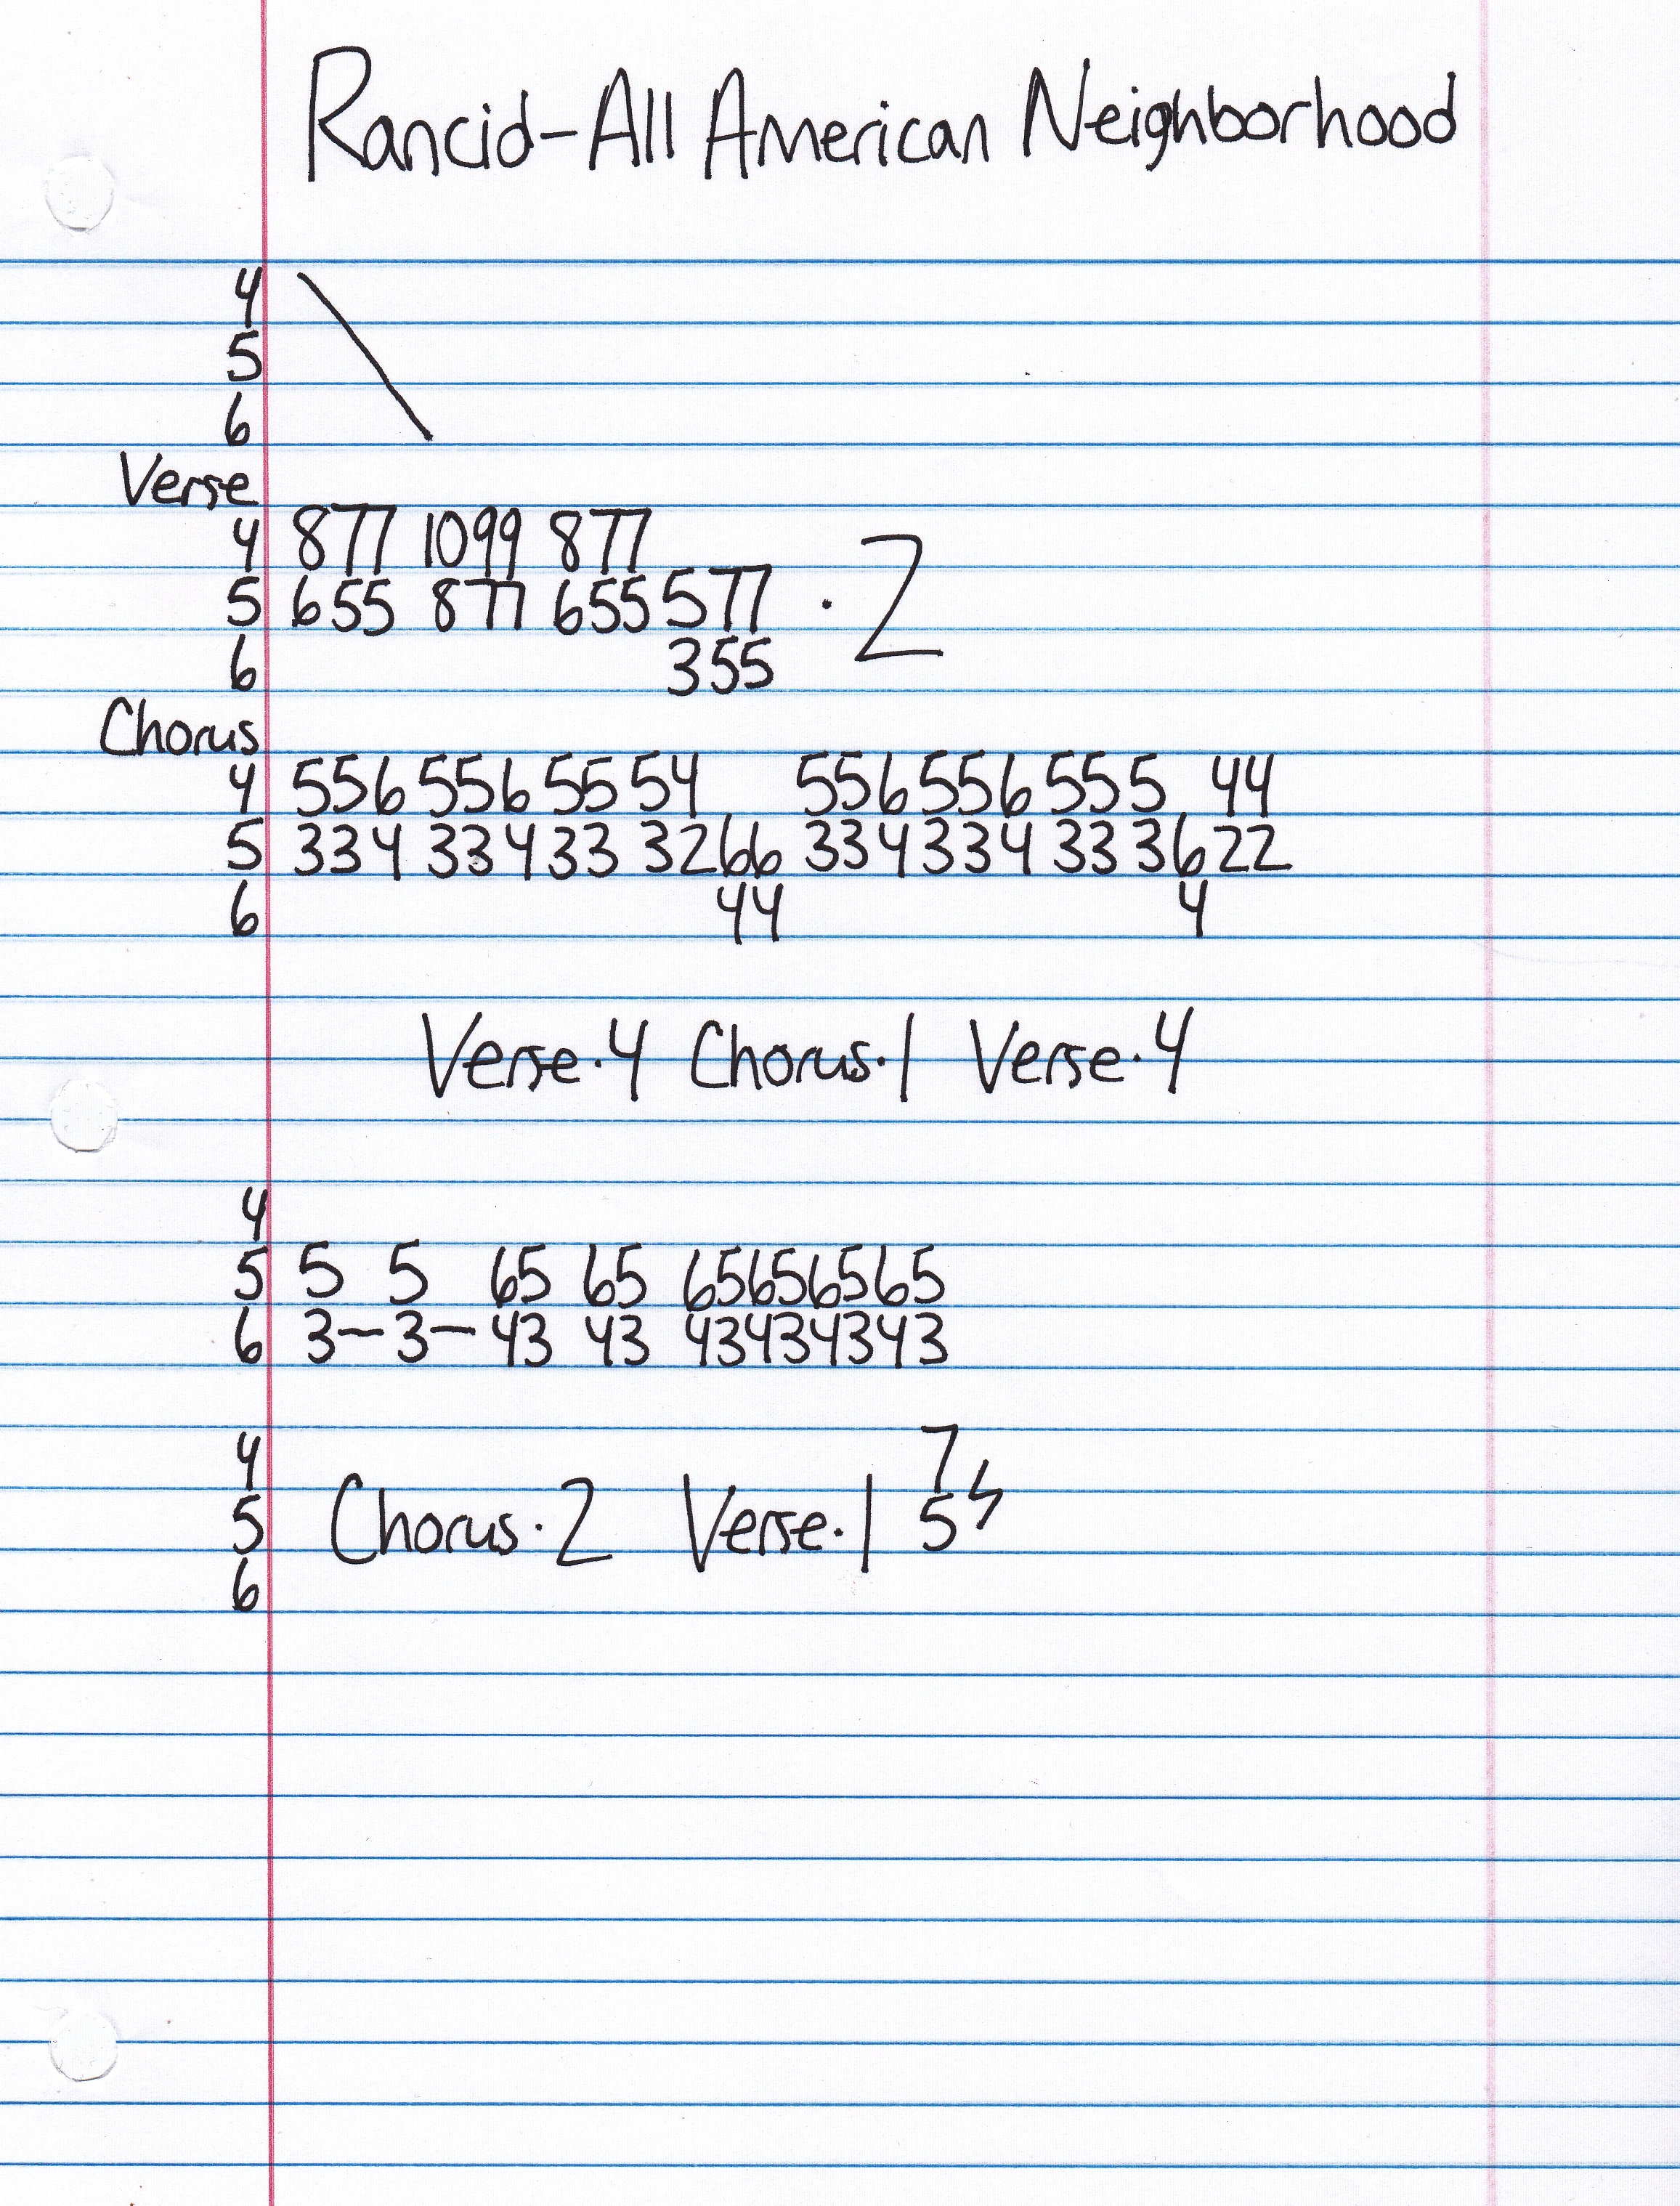 Rancid-All American Neighborhood
4
5
6
Verse
4 877 1099 877
5 655 877 655 577 · 2
6 355
Chorus
4 556 556 55 54 556 556 555 5 44
5 334 334 33 3266 334 334 33 3622
6 44 4
Verse·4 Chorus·1 Verse·4
4
5 5 5 65 65 65656565
6 3-3- 43 43 43434343
4 7
5 Chorus·2 Verse·1 5
6